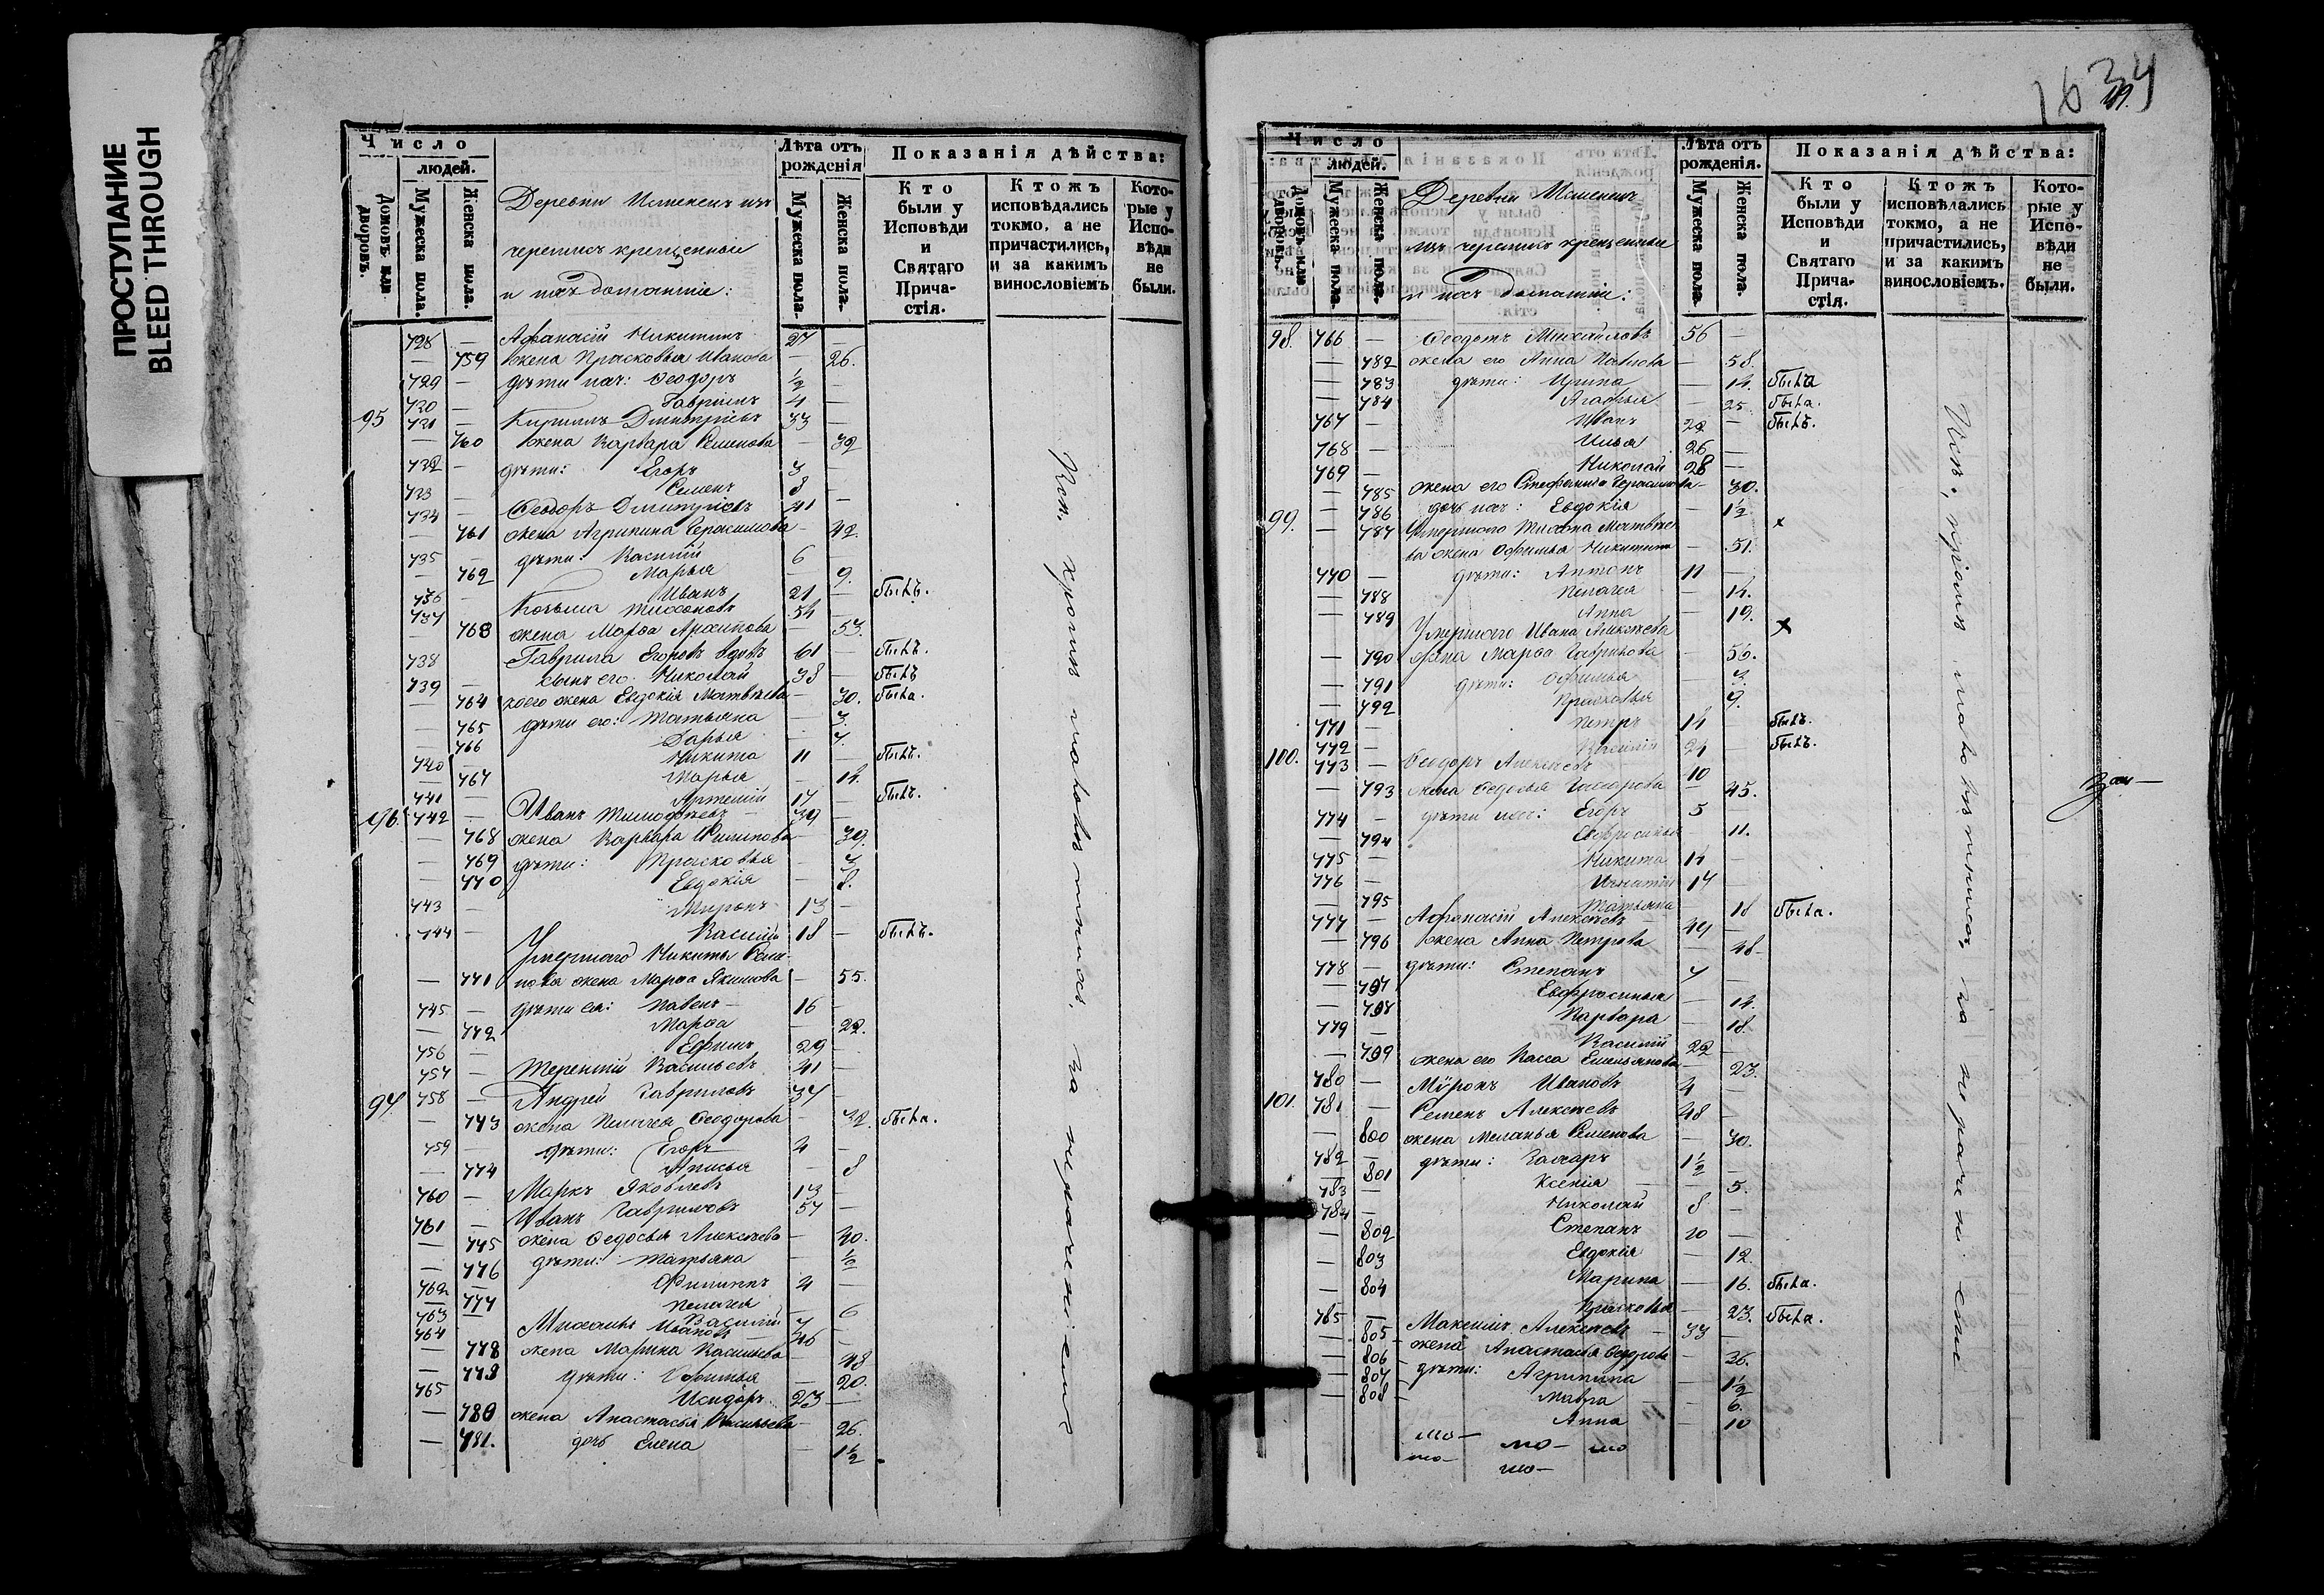 ПРОСТУПАНИЕ
BLEED THROUGH
Число
людей.
Домовъ или дворовъ.
Мужеска пола.
Женска пола.
Деревни
черемисъ крещенныи
и ихъ домашніе:
Лѣта отъ рожденія
Мужеска пола.
Женска пола.
Показанія дѣйства:
Кто были у Исповѣди и Святаго Причастія.
Ктожъ исповѣдались токмо, а не причастились, и за какимъ винословіемъ
Которые у Исповѣди не были.
728 — Афанасій Никитинъ 27 —
— 759 жена Прасковья Иванова — 26.
729 — дѣти ихъ: Ѳеодоръ ½ —
730 — Гаврилъ 4 —
95 731 — Кириллъ Дмитріевъ 33 —
— 760 жена Варвара Семенова — 32
732 — дѣти: Егоръ 3 —
733 — Семенъ 8 —
734 — Ѳеодоръ Дмитріевъ 41 —
— 761 жена Агрипина Герасимова — 42.
735 — дѣти: Василій 6 —
— 762 Марья — 9.
736 — Иванъ 21 — былъ.
737 — Козьма Тихоновъ 54 —
— 763 жена Марѳа Архипова — 53.
738 — Гаврила Егоровъ вдовъ 61 — былъ.
739 — сынъ его Николай 38 — былъ
— 764 коего жена Евдокія Матвѣева — 30. была.
— 765 дѣти его: Татьяна — 3.
— 766 Дарья — 7.
740 — Никита 11 — былъ.
— 767 Марья — 14.
741 — Артемій 17 — былъ.
96. 742 — Иванъ Тимофѣевъ 39 —
— 768 жена Варвара Филипова — 39.
— 769 дѣти: Прасковья — 7
— 770 Евдокія — 8.
743 — Миронъ 13 —
744 — Василій 18 — былъ.
Умершаго Никиты Семе-
— 771 нова жена Марѳа Якимова — 55.
745 — дѣти ея: Павелъ 16 —
— 772 Марѳа — 22.
756 — Ефимъ 29 —
757 — Терентій Васильевъ 41 —
97. 758 — Андрей Гавриловъ 37 —
— 773 жена Пелагея Ѳеодорова — 32. была.
759 — дѣти: Егоръ 4 —
— 774 Анисья — 8
760 — Маркъ Яковлевъ 13 —
761 — Иванъ Гавриловъ 57 —
— 775 жена Ѳедосья Алексѣева — 40.
— 776 дѣти: Татьяна — ½
762 — Филиппъ 4 —
— 777 Пелагея — 6
763 — Василій 7 —
764 Михаилъ Ивановъ — 46 —
— 778 жена Марина Васильева — 48
— 779 дѣти: Софья — 20.
765 Исидоръ 23 —
— 780 жена Анастасья Васильева — 26.
— 781. дочь Елена — 1½
1634
Число
людей.
Домовъ или дворовъ.
Мужеска пола.
Женска пола.
Деревни
изъ черемисъ крещенныи
и ихъ домашніе:
Лѣта отъ рожденія.
Мужеска пола.
Женска пола.
Показанія дѣйства:
Кто были у Исповѣди и Святаго Причастія.
Ктожъ исповѣдались токмо, а не причастились, и за какимъ винословіемъ.
Которые у Исповѣди не были.
98. 766 — Ѳеодотъ Михайловъ 56 —
— 782 жена его Анна Павлова — 58.
— 783 дѣти: Ирина — 14. была
— 784 Агафья — 25 была.
767 — Иванъ 22 — былъ.
768 — Илья 26 —
769 — Николай 28 —
— 785 жена его Стефанида Герасимова — 30.
— 786 дочь ихъ: Евдокія — 1½
99. — 787 Умершаго Тихона Матвѣе-
ва жена Офимья Никитина — 51.
770 — дѣти: Антонъ 11 —
— 788 Пелагея — 14.
— 789 Анна — 19.
Умершаго Ивана Алексѣева
— 790 жена Марѳа Гаврилова — 56.
— 791 дѣти: Офимья — 3.
— 792 Прасковья — 9.
771 — Петръ 14 былъ.
772 — Василій 24 — былъ.
100. 773 — Ѳеодоръ Алексѣевъ 40
— 793 жена Ѳедосья Захарова — 45.
774 — дѣти ихъ: Егоръ 5
— 794 Евфросинья — 11.
775 — Никита 14 —
776 — Игнатій 17 —
— 795 Татьяна — 18 была.
777 — Афанасій Алексѣевъ 49 —
— 796 жена Анна Петрова — 48-
778 — дѣти: Степанъ 7 —
— 797 Евфросинья — 14.
— 798 Варвара — 18.
779 — Василій 22 —
— 799 жена его Васса Емельянова — 23.
780 — Мѵронъ Ивановъ 4 —
101. 781 — Семенъ Алексѣевъ 48 —
— 800 жена Меланья Семенова — 40.
782 — дѣти: Захаръ 1½ —
— 801 Ксенія — 5.
783 — Николай 8 —
784 — Степанъ 20 —
— 802 Евдокія — 12.
— 803 Марина — 16. была.
— 804 Прасковья — 23. была.
785 — Максимъ Алексѣевъ — 33 —
— 805 жена Анастасья Ѳедорова — 36.
— 806 дѣти: Агрипина — 1½
— 807 Мавра — 6.
— 808 Анна — 10